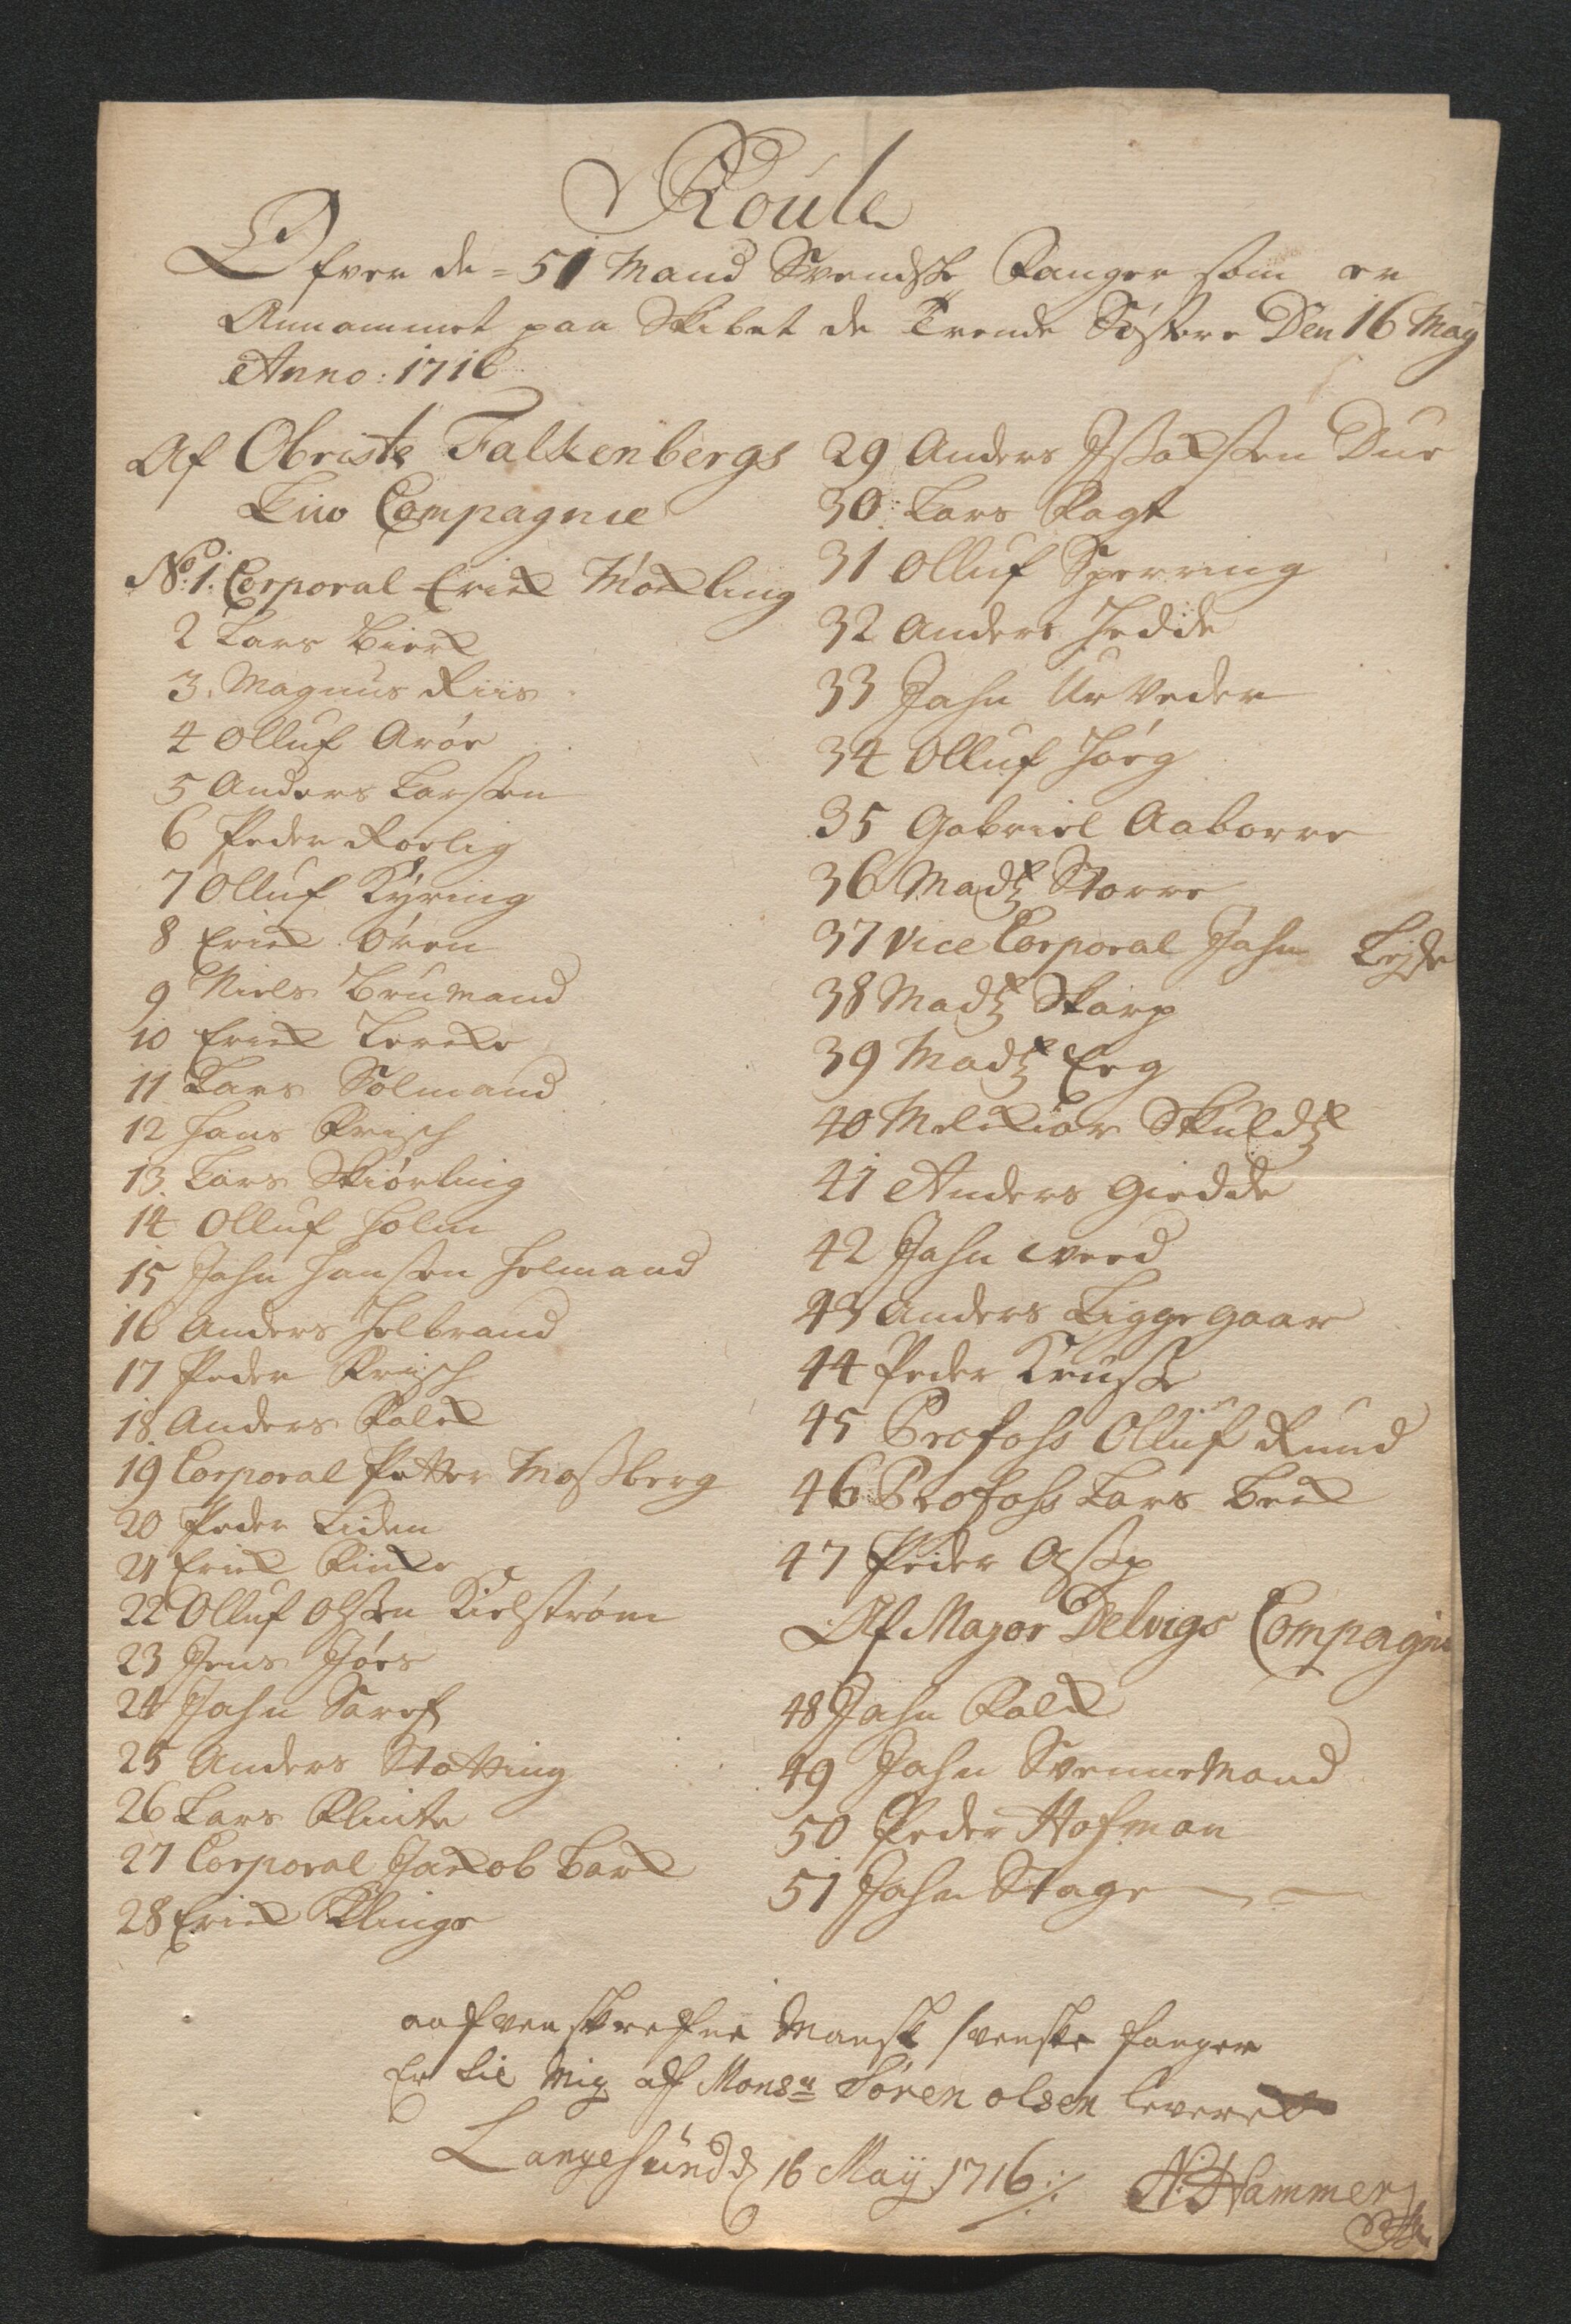 Roule
Ofver de = 51 Mand Svendske Fanger som er
Annammet paa Skibet de Trende Søstre Den 16 May
Anno: 1716
Af Obriste Falkenbergs
Liio Compagnie
No. 1. Corporal Erich Mörling
2 Lars Bierch
3. Magnus Riis
4 Olluf Aröe
5 Anders Larssen
6 Peder Roelig
7 Olluf Kÿring
8 Erich Ören
9 Niels Brumand
10 Erich Lerche
11 Lars Solmand
12 Hans Frisch
13 Lars Skiörling
14 Olluf Holm
15 Jahn Hanssen Holmand
16 Anders Holbrand
17 Peder Frisch
18 Anders Falch
19 Corporal Petter Mossberg
20 Peder Liden
21 Erich Finche
22 Olluf Olssen Kielström
23 Jens Jöes
24 Jahn Saref
25 Anders Stotting
26 Lars Klinte
27 Corporal Jacob Barch
28 Erich Klinge
29 Anders Issachsen Dur
30 Lars Fagt
31 Olluf Sperring
32 Anders Hedde
33 Jahn Ur Veder
34 Olluf Hög
35 Gabriel Aaborre
36 Madtz Storre
37 Vice Corporal Jahn
38 Madtz Skarp
39 Madtz Eeg
40 Melchior Skuldtz
41 Anders Giedde
42 Jahn Vred
43 Anders Liggegaar
44 Peder Krusse
45 Profoss Olluf Rund
46 Profoss Lars Bech
47 Peder Assp
Af Major Delvigs Compagni
48 Jahn Falch
49 Jahn Svennemand
50 Peder Hofman
51 Jahn Stage
ofvenskrefne Mansk svenske fanger
Er til Mig af Monsr Sören olsen leveret
Langesund d 16 Maÿ 1716
N: Hammer